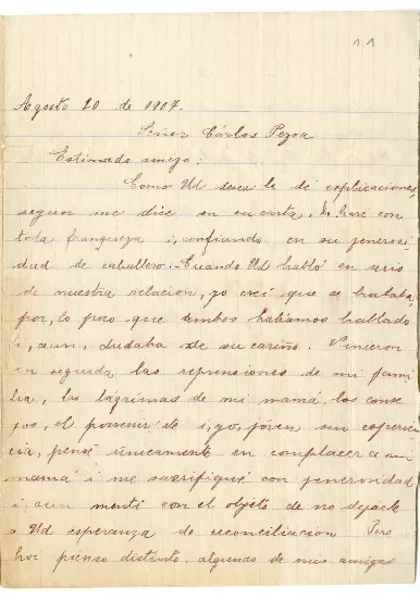 1.1
Agosto 20 de 1907.
Señor Cárlos Pezoa
Estimado amigo:
Como Ud desea le dé esplicaciones,
segun me dice en su carta, lo haré con
toda franqueza i, confiando en su jenerosi
dad de caballero. Cuando Ud habló en serio
de nuestra relacion, yo creí que se burlaba
por lo poco que ambos habíamos hablado
i, aun, dudaba de su cariño. Vinieron
en seguida las reprensiones de mi fami
lia, las lágrimas de mi mamá, los conse
jos, el porvenir etc i, yo, jóven sin esperien
cia, pensé únicamente en complacer a mi
mamá i me sacrifiqué con jenerosidad
i, aun mentí con el objeto de no dejarle
a Ud esperanza de reconciliacion. Pero
hoi pienso distinto, algunas de mis amigas